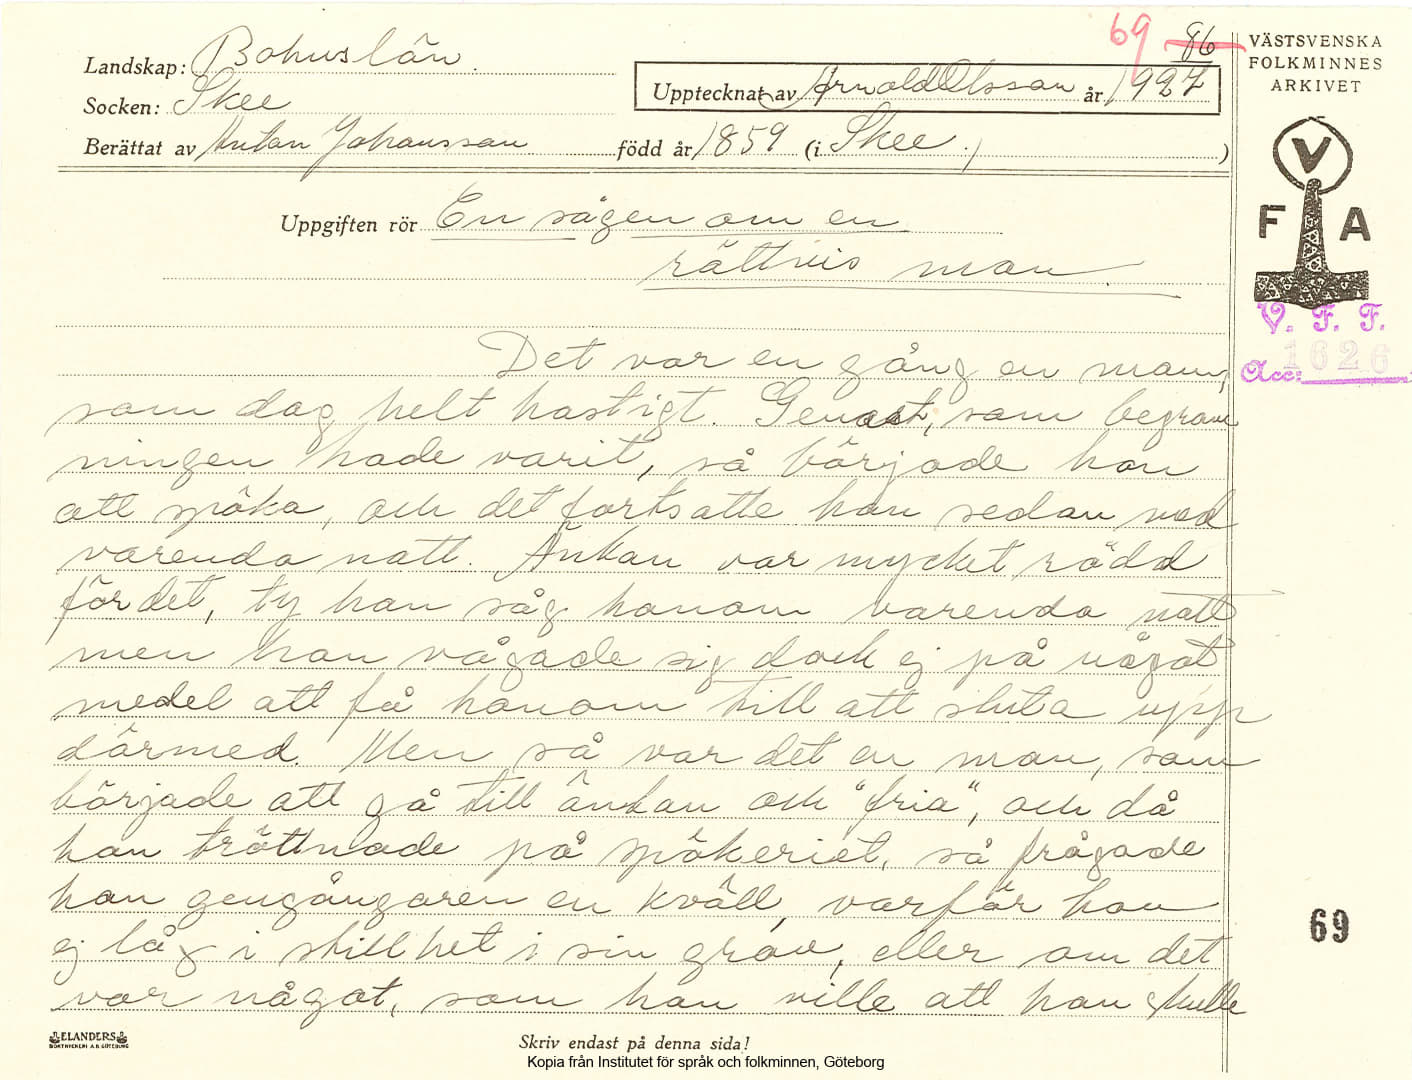 69 86
VÄSTSVENSKA
FOLKMINNES
ARKIVET
Landskap: Bohuslän.
Socken: Skee
Upptecknat av Arnold Olsson år 1927
Berättat av Anton Johansson född år 1859 (i Skee.)
Uppgiften rör En sägen om en
rättvis man.
V
F A
V. F. F.
Acc: 1626
Det var en gång en man,
som dog helt hastigt. Genast, som begrav
ningen hade varit, så började han
att spöka, och det fortsatte han sedan med
varenda natt. Änkan var mycket rädd
för det, ty hon såg honom varenda natt
men hon vågade sig dock ej på något
medel att få honom till att sluta upp
därmed. Men så var det en man, som
började att gå till änkan och "fria", och då
han tröttnade på spökeriet, så frågade
han gengångaren en kväll, varför han
ej låg i stillhet i sin grav, eller om det
var något, som han ville att han skulle
69
ELANDERS
BOKTRYCKERI A.B. GÖTEBORG
Skriv endast på denna sida!
Kopia från Institutet för språk och folkminnen, Göteborg